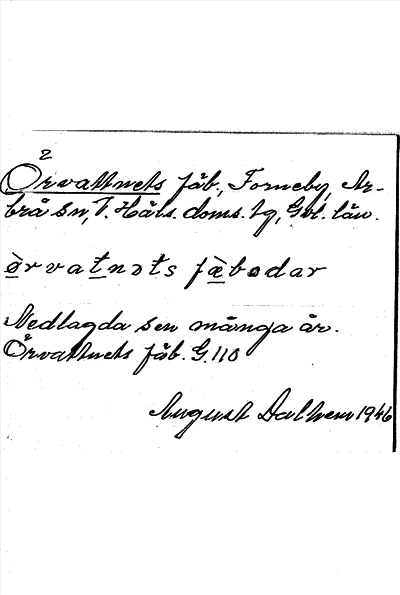 2
Örvattnets fäb., Forneby, Ar-
brå sn, V. Häls. doms. tg, Gvl. län.
ørvatnəts fæbodar
Nedlagda sen många år.
Örvattnets fäb. G. 110
August Dalhem 1946